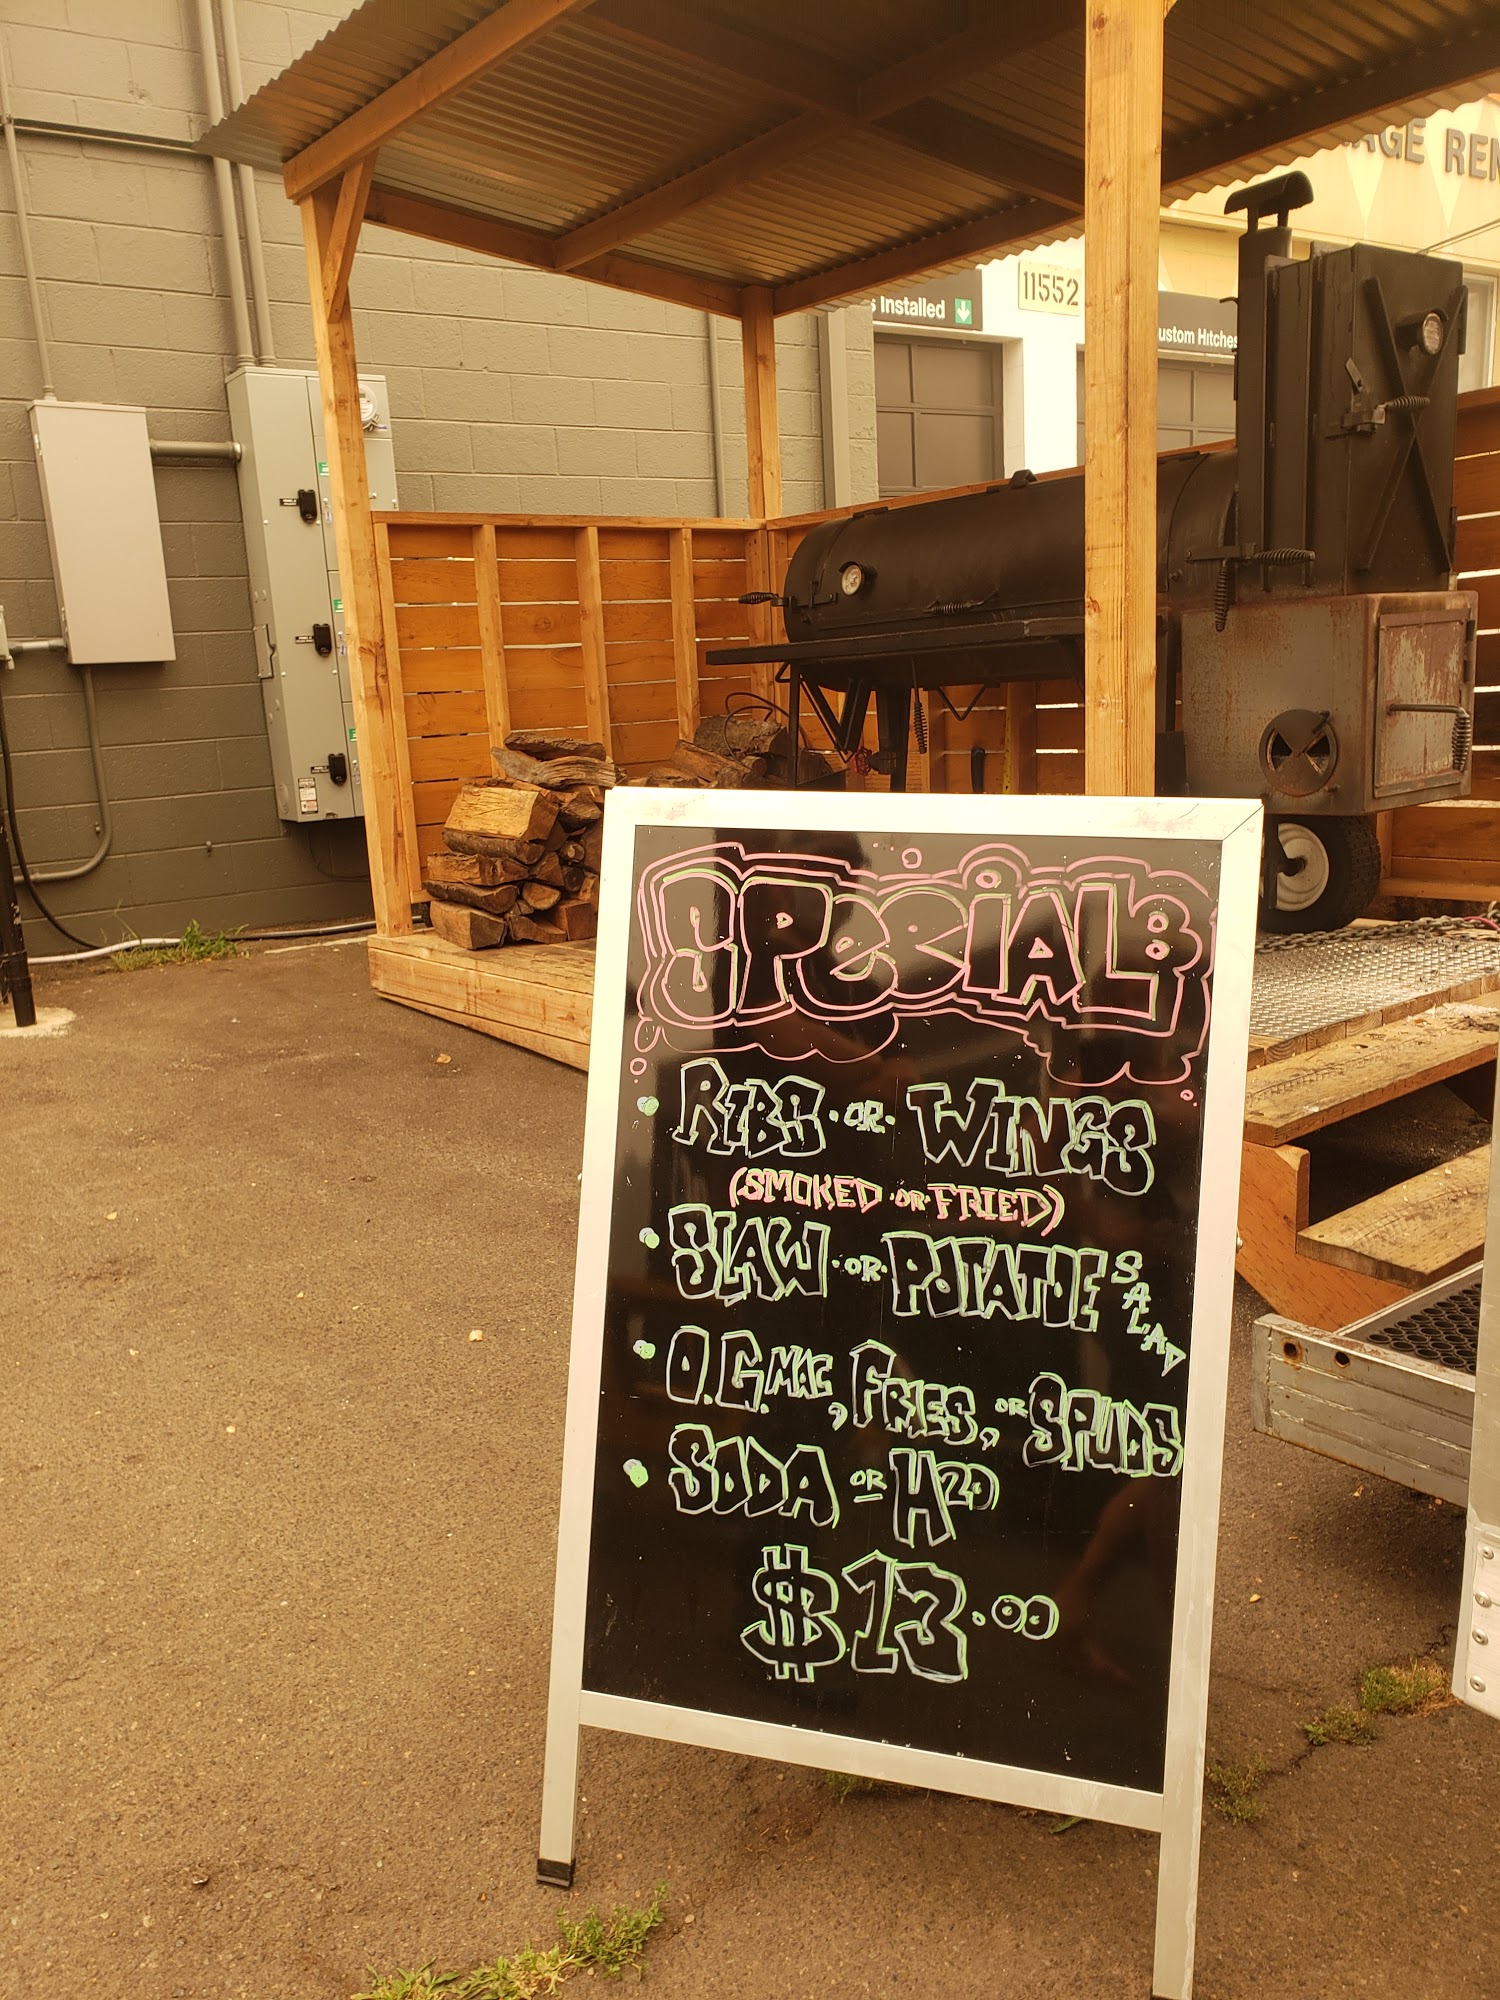 AGE REN
11552
s Installed
ustom Hitches
SPeCiALS
RIBS · OR · WINGS
(SMOKED · OR · FRIED)
SLAW · OR · POTATOE SALAD
O.G. MAC, FRIES, OR SPUDS
SODA OR H20
$13.00